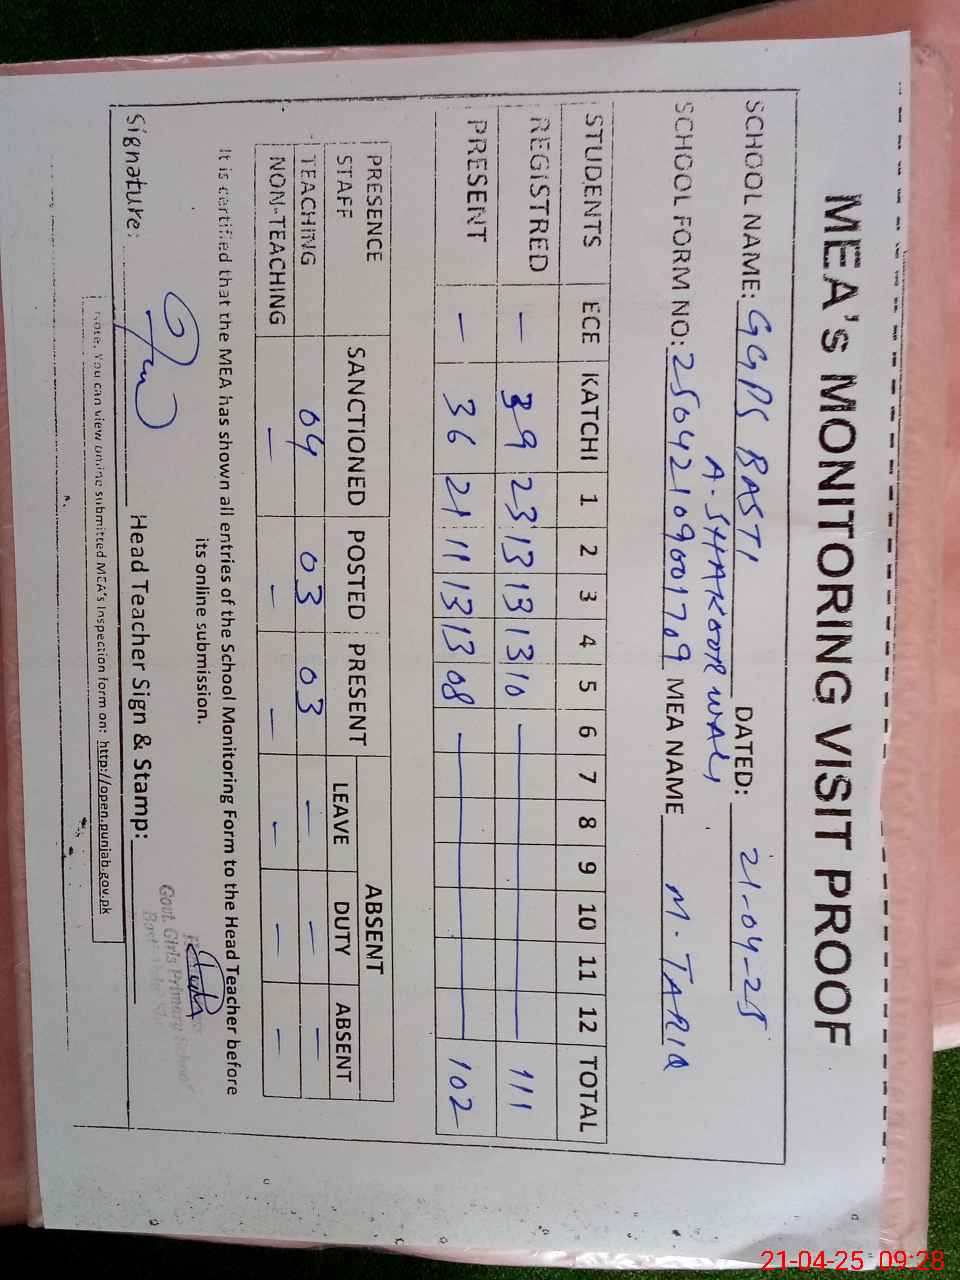 MEA's MONITORING VISIT PROOF
SCHOOL NAME: GGPS BASTI DATED: 21-04-25
A. SHAKOOR WALI
SCHOOL FORM NO: 25042109001709 MEA NAME M. TARIQ
STUDENTS ECE KATCHI 1 2 3 4 5 6 7 8 9 10 11 12 TOTAL
REGISTRED — 39 23 13 13 13 10 — 111
PRESENT — 36 21 11 13 13 08 — 102
PRESENCE ABSENT
STAFF SANCTIONED POSTED PRESENT LEAVE DUTY ABSENT
TEACHING 04 03 03 — — —
NON-TEACHING — — — — — —
It is certified that the MEA has shown all entries of the School Monitoring Form to the Head Teacher before
its online submission.
Govt. Girls Primary School
Signature: Head Teacher Sign & Stamp:
Note. You can view online submitted MEA's Inspection form on: http://open.punjab.gov.pk
21-04-25 09:28